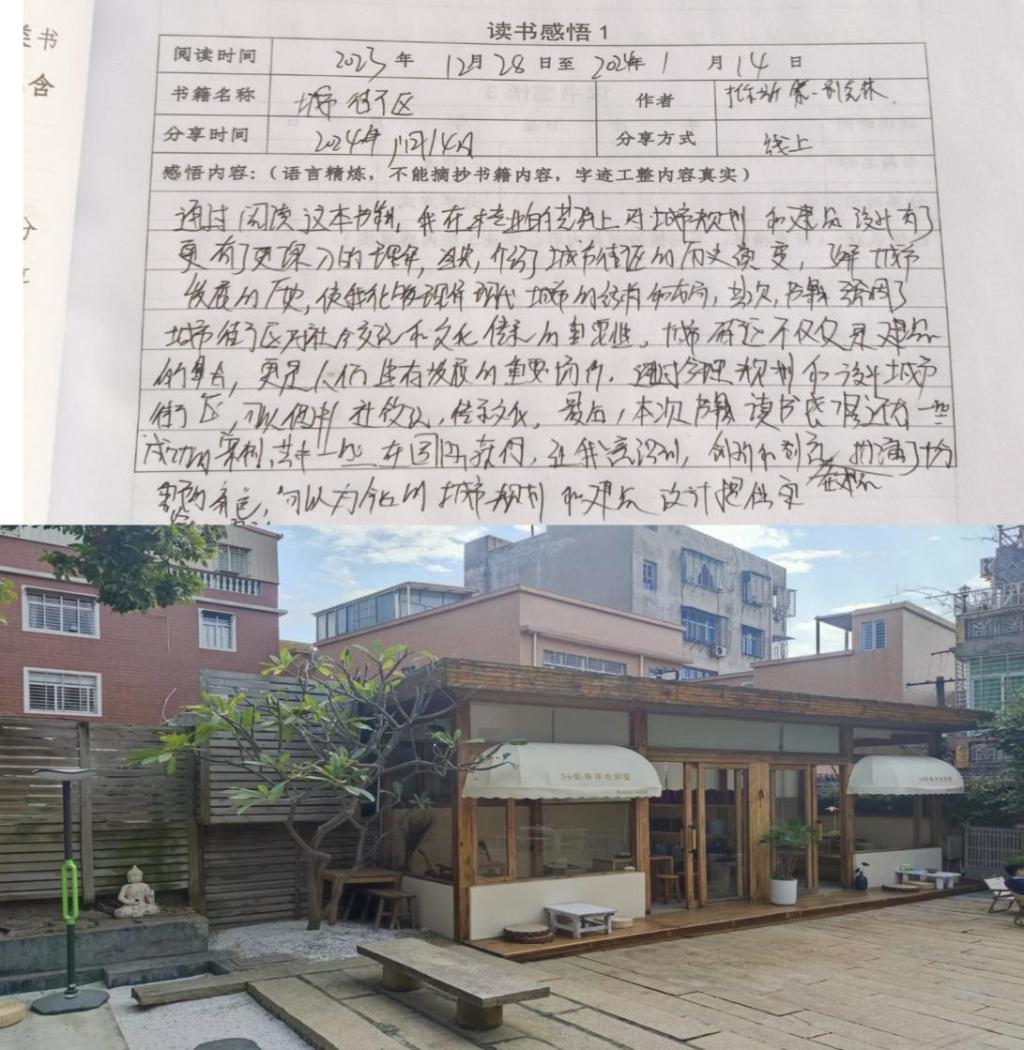 类书
含
读书感悟 1
阅读时间 2023 年 12月 28 日至 2024年 1 月 14 日
书籍名称 城市街区 作者
分享时间 2024年 1月14日 分享方式 线上
感悟内容:（语言精炼，不能摘抄书籍内容，字迹工整内容真实）
通过阅读这本书籍，我在本专业的基础上对城市规划和建筑设计有了
更有了更深刻的理解，首先，介绍了城市街区的历史演变，了解城市
发展的历史，使我能够理解现代城市的结构和布局，其次，书籍强调了
城市街区对社会交流和文化传承的重要性。城市街区不仅仅是建筑
的集合，更是人们生存发展的重要场所。通过合理规划和设计城市
街区，可以促进社交，传承文化。最后，本次书籍读书我还有一些
成功的案例，其中一些在国际获得，让我意识到，创新和扮演了
角色，可以为今后的城市规划和建筑设计提供